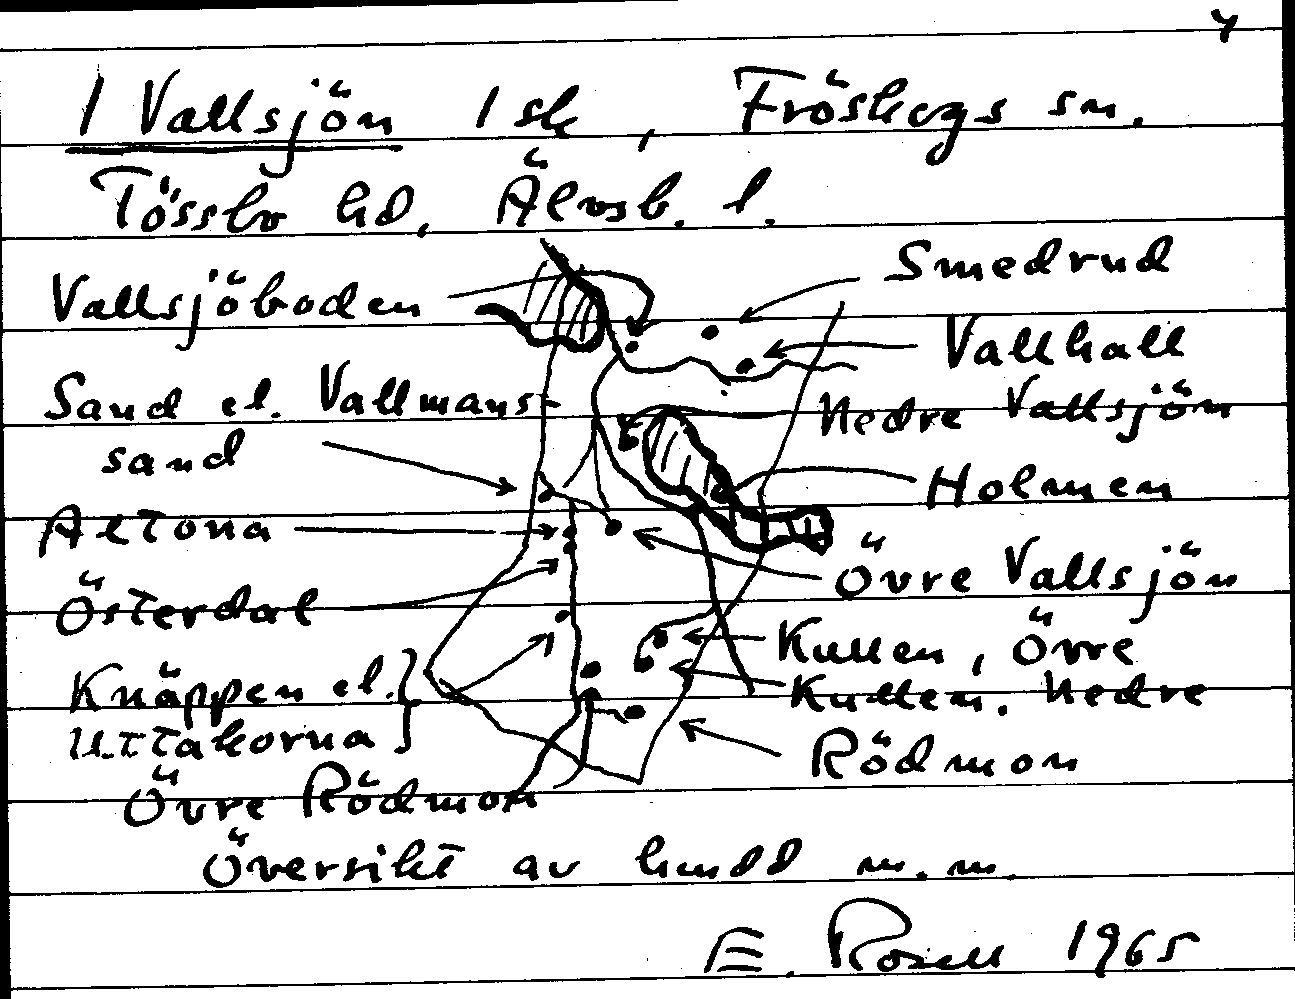 4
1 Vallsjön 1 sk, Fröskogs sn.
Tössbo hd, Älvsb. l.
Vallsjöboden
Smedrud
Vallhall
Sand el. Vallmans-
sand
Nedre Vallsjön
Holmen
Altona
Österdal
Övre Vallsjön
Knäppen el.
Uttåkorna
Kullen, Övre
Kullen, Nedre
Rödmon
Övre Rödmon
Översikt av hmdd m.m.
E. Rosell 1965